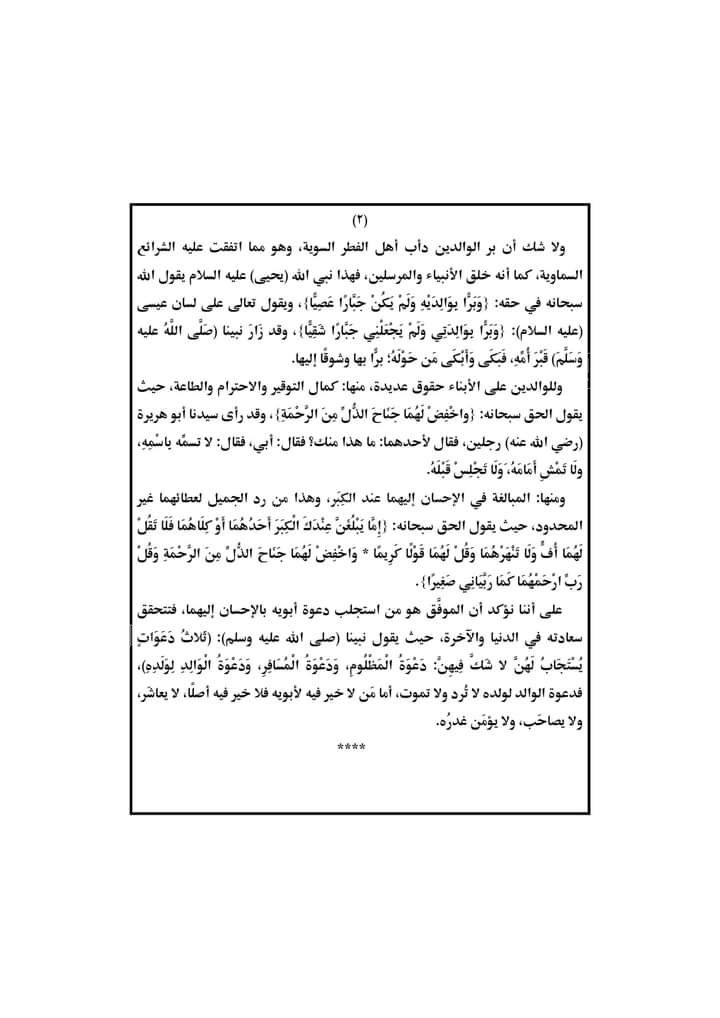 (٢)
ولا شك أن بر الوالدين دأب أهل الفطر السوية، وهو مما اتفقت عليه الشرائع
السماوية، كما أنه خلق الأنبياء والمرسلين، فهذا نبي الله (يحيى) عليه السلام يقول الله
سبحانه في حقه: {وَبَرًّا بِوَالِدَيْهِ وَلَمْ يَكُنْ جَبَّارًا عَصِيًّا}، ويقول تعالى على لسان عيسى
(عليه السلام): {وَبَرًّا بِوَالِدَتِي وَلَمْ يَجْعَلْنِي جَبَّارًا شَقِيًّا}، وقد زَارَ نبينا (صَلَّى اللَّهُ عليه
وَسَلَّمَ) قَبْرَ أُمِّهِ، فَبَكَى وَأَبْكَى مَن حَوْلَهُ؛ برًّا بها وشوقًا إليها.
وللوالدين على الأبناء حقوق عديدة، منها: كمال التوقير والاحترام والطاعة، حيث
يقول الحق سبحانه: {واخْفِضْ لَهُمَا جَنَاحَ الذُّلِّ مِنَ الرَّحْمَةِ}، وقد رأى سيدنا أبو هريرة
(رضي الله عنه) رجلين، فقال لأحدهما: ما هذا منك؟ فقال: أبي، فقال: لا تسمِّه باسْمِهِ،
ولَا تَمْشِ أَمَامَهُ، وَلَا تَجْلِسْ قَبْلَهُ.
ومنها: المبالغة في الإحسان إليهما عند الكِبَر، وهذا من رد الجميل لعطائهما غير
المحدود، حيث يقول الحق سبحانه: {إِمَّا يَبْلُغَنَّ عِنْدَكَ الْكِبَرَ أَحَدُهُمَا أَوْ كِلَاهُمَا فَلَا تَقُلْ
لَهُمَا أُفٍّ وَلَا تَنْهَرْهُمَا وَقُلْ لَهُمَا قَوْلًا كَرِيمًا * وَاخْفِضْ لَهُمَا جَنَاحَ الذُّلِّ مِنَ الرَّحْمَةِ وَقُلْ
رَبِّ ارْحَمْهُمَا كَمَا رَبَّيَانِي صَغِيرًا}.
على أننا نؤكد أن الموفَّق هو من استجلب دعوة أبويه بالإحسان إليهما، فتتحقق
سعادته في الدنيا والآخرة، حيث يقول نبينا (صلى الله عليه وسلم): (ثَلاثُ دَعَوَاتٍ
يُسْتَجَابُ لَهُنَّ لا شَكَّ فِيهِنَّ: دَعْوَةُ الْمَظْلُومِ، وَدَعْوَةُ الْمُسَافِرِ، وَدَعْوَةُ الْوَالِدِ لِوَلَدِهِ)،
فدعوة الوالد لولده لا تُرد ولا تموت، أما مَن لا خير فيه لأبويه فلا خير فيه أصلًا، لا يعاشَر،
ولا يصاحَب، ولا يؤمَن غدرُه.
****